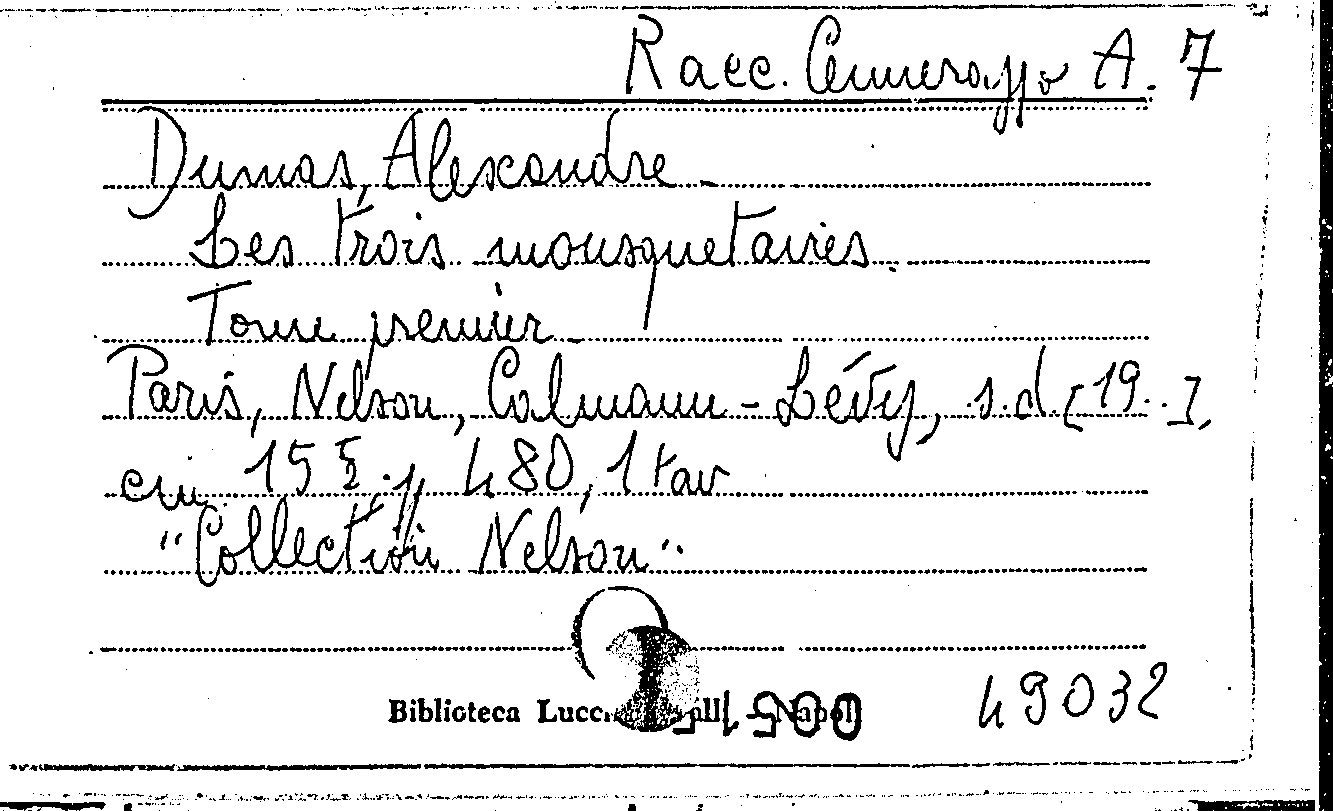 Racc. Cennerazzo A. 7
Dumas, Alexandre.
Les trois mousquetaires.
Tome premier.
Paris, Nelson, Calmann-Lévy, s.d. [19..],
cm. 15 p. 480, 1 tav
"Collection Nelson".
Biblioteca
49032